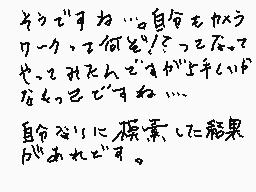 そうですね…。自分もカメラ
ワークって何ぞ!?ってなって
やってみたんですが上手くいか
なくってですね….
自分なりに模索した結果
があれです。